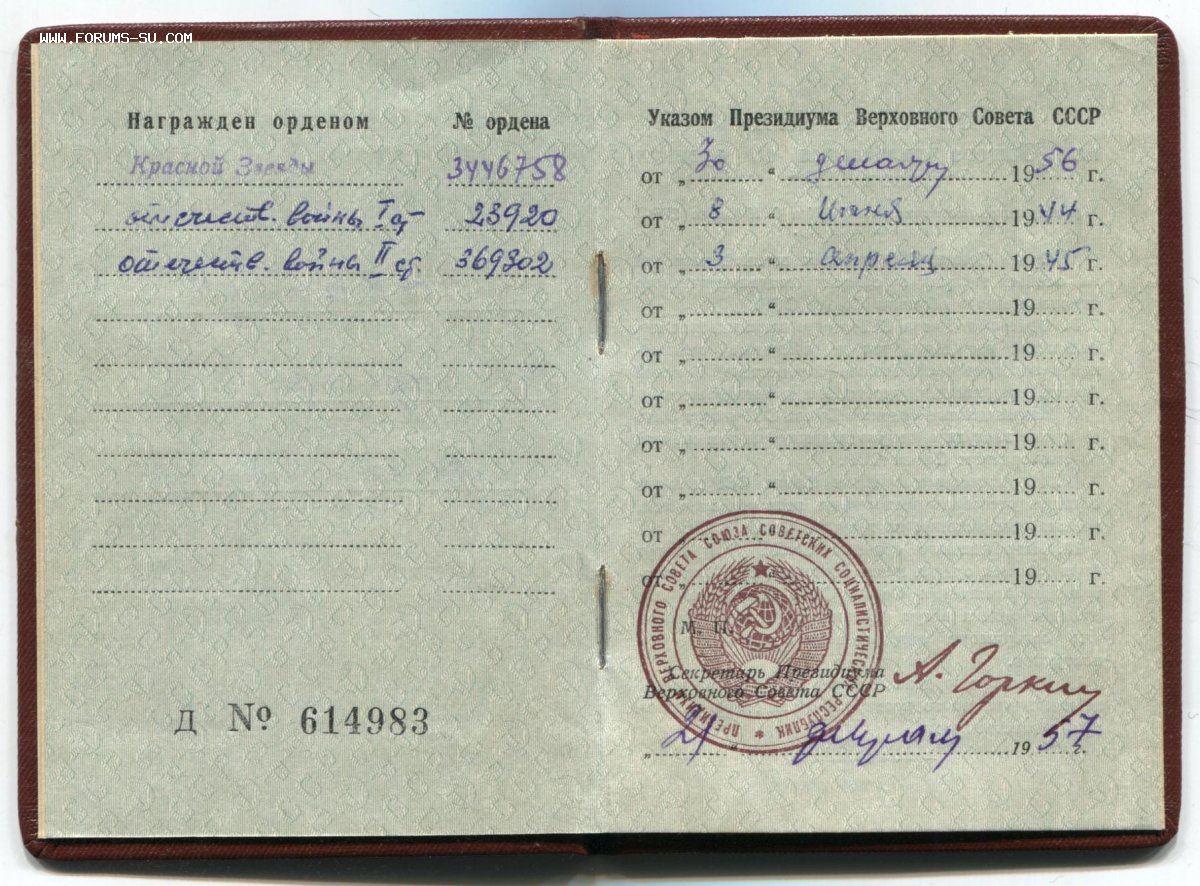 WWW.FORUMS-SU.COM
Награжден орденом № ордена
Красной Звезды 3446758
отечеств. войны I ст 23920
отечеств. войны II ст. 369302
Д № 614983
Указом Президиума Верховного Совета СССР
от „ 30 “ декабря 1956 г.
от „ 8 “ Июня 1944 г.
от „ 3 “ апреля 1945 г.
от „ “ 19 г.
от „ “ 19 г.
от „ “ 19 г.
от „ “ 19 г.
от „ “ 19 г.
от „ “ 19 г.
от „ “ 19 г.
ПРЕЗИДИУМ ВЕРХОВНОГО СОВЕТА СОЮЗА СОВЕТСКИХ СОЦИАЛИСТИЧЕСКИХ РЕСПУБЛИК
М. П.
Секретарь Президиума
Верховного Совета СССР А. Горкин
„ 21 “ февраля 1957 г.